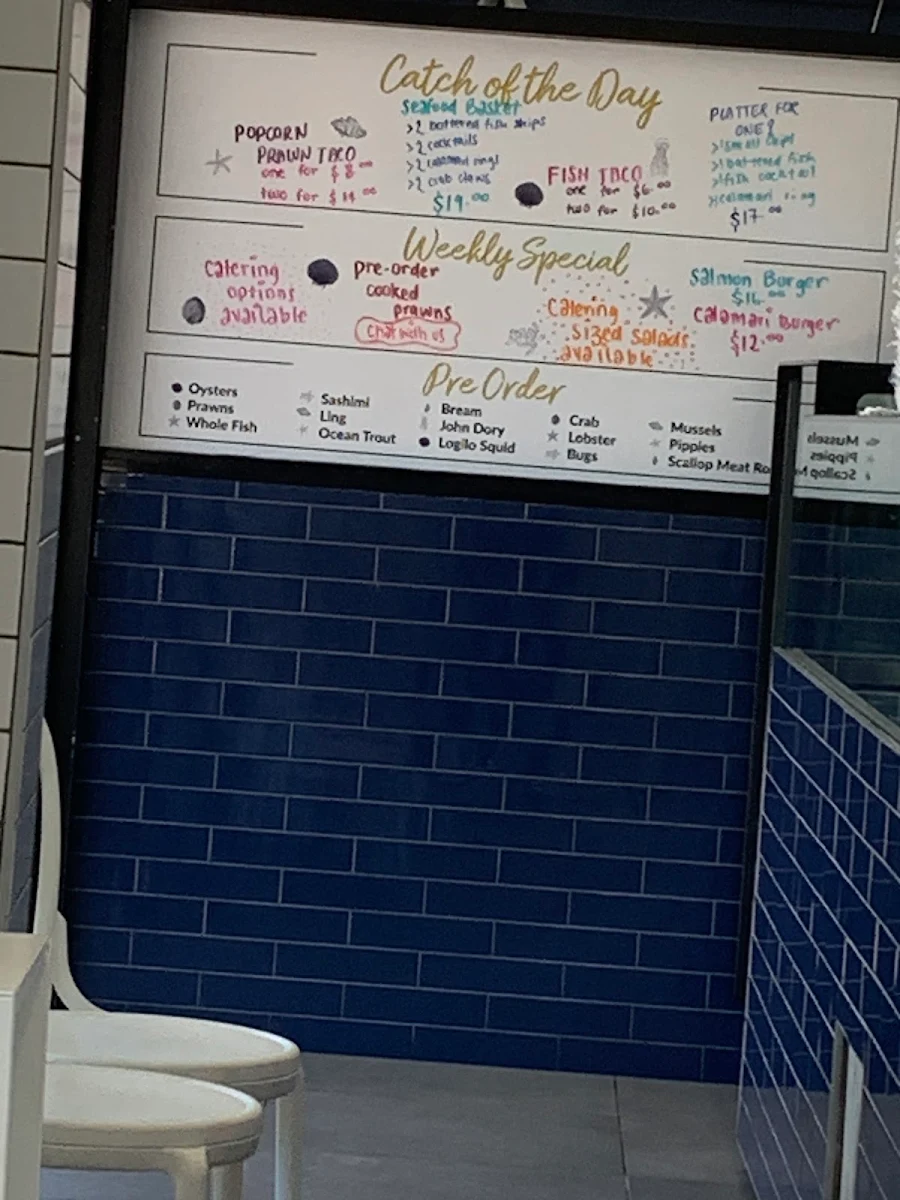 Catch of the Day
POPCORN
PRAWN TACO
one for $8.00
two for $14.00
Seafood Basket
>2 battered fish strips
>2 cocktails
>2 calamari rings
>2 crab claws
$19.00
FISH TACO
one for $6.00
two for $10.00
PLATTER FOR
ONE!
>small chips
>1 battered fish
>1 fish cocktail
>1 calamari ring
$17.00
Weekly Special
Catering
options
available
pre-order
cooked
prawns
Chat with us
Catering
sized salads
available
Salmon Burger
$16.00
Calamari Burger
$12.00
Pre Order
Oysters
Prawns
Whole Fish
Sashimi
Ling
Ocean Trout
Bream
John Dory
Logilo Squid
Crab
Lobster
Bugs
Mussels
Pippies
Scallop Meat Ro